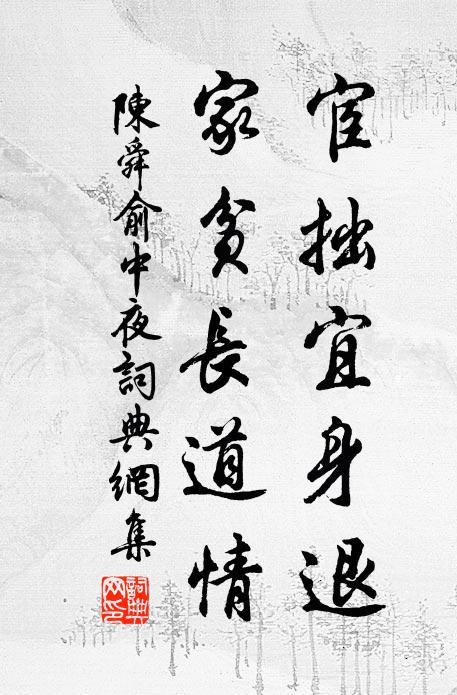 宦拙宜身退
家貧長道情
陳舜俞中夜詞典網集
詞典网印